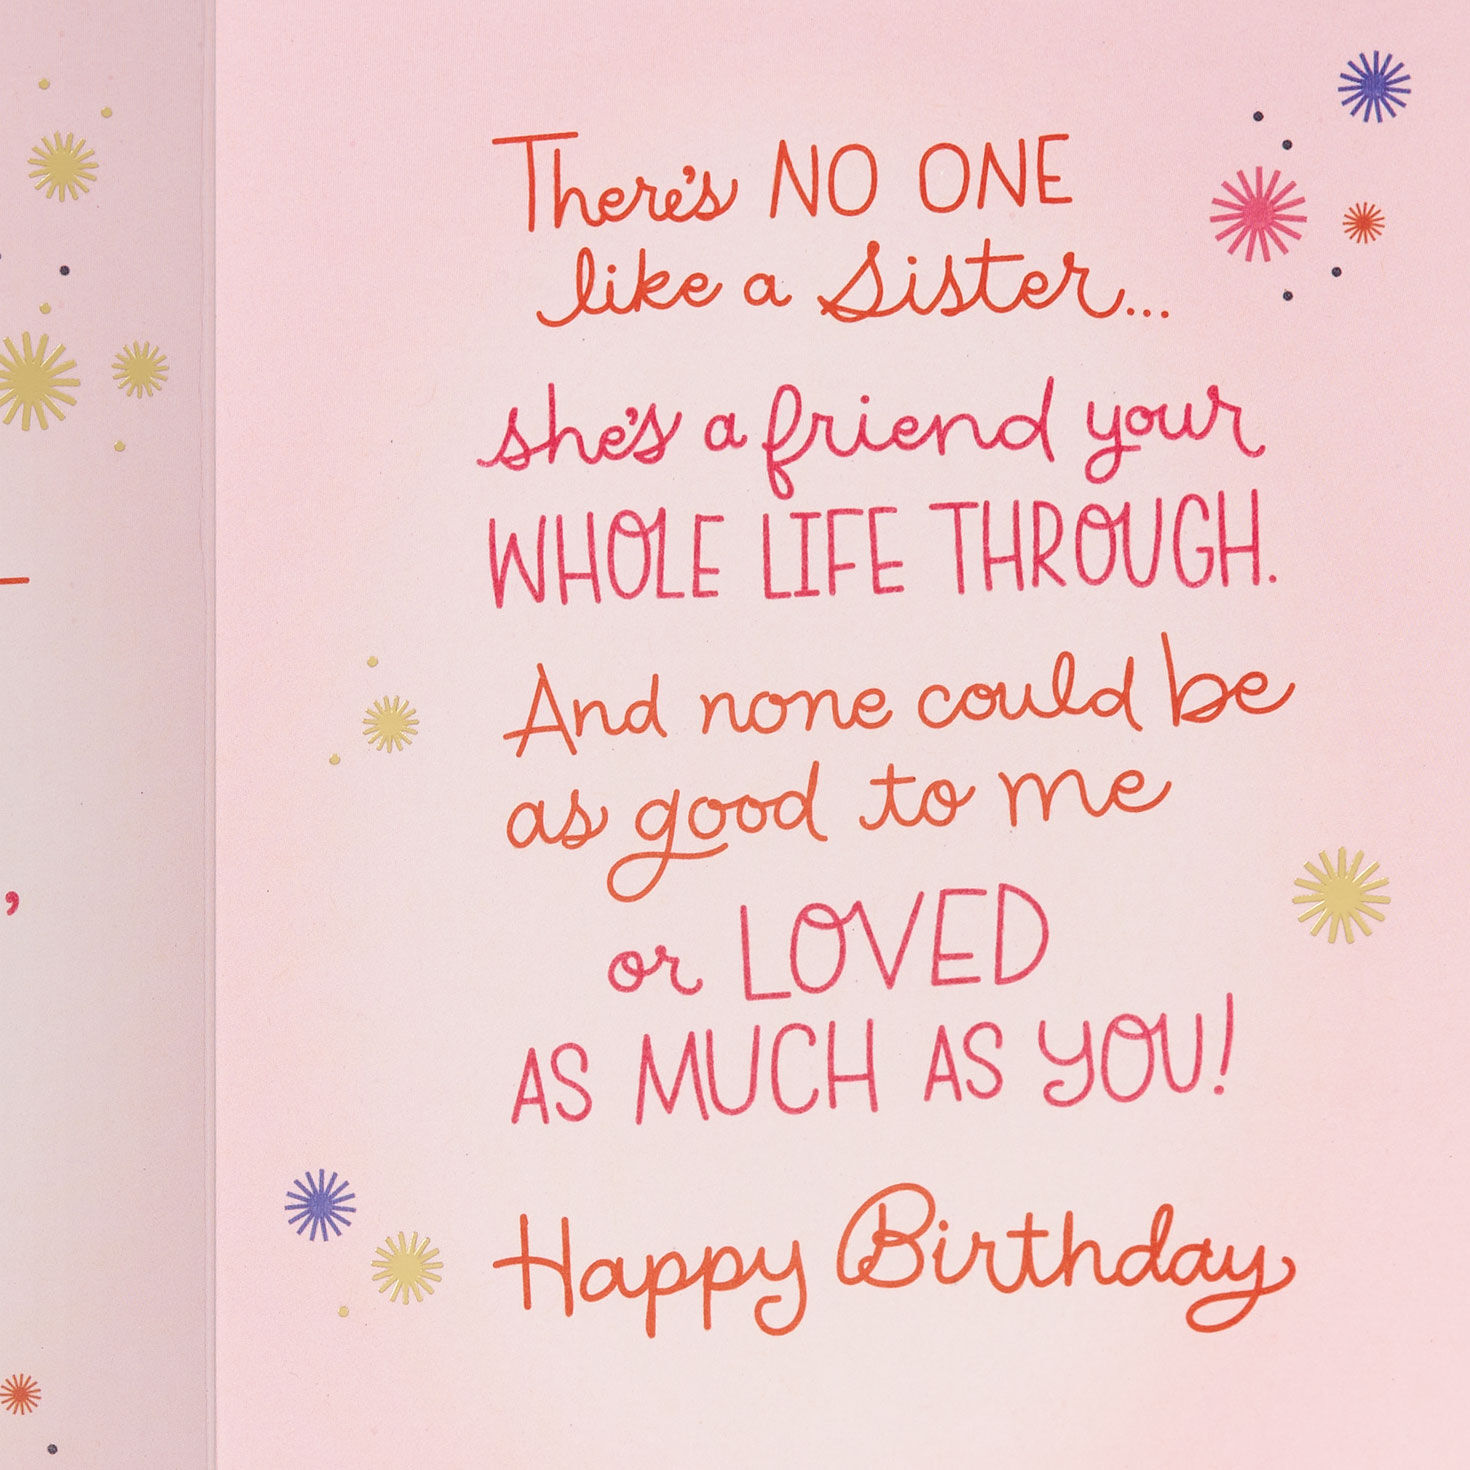 There's NO ONE
like a Sister...
she's a friend your
WHOLE LIFE THROUGH.
And none could be
as good to me
or LOVED
AS MUCH AS YOU!
Happy Birthday